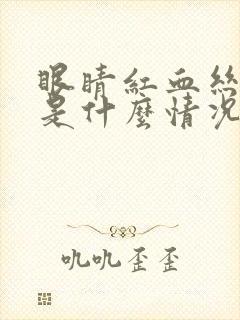 眼睛紅血絲
是什麼情況
吼吼歪歪